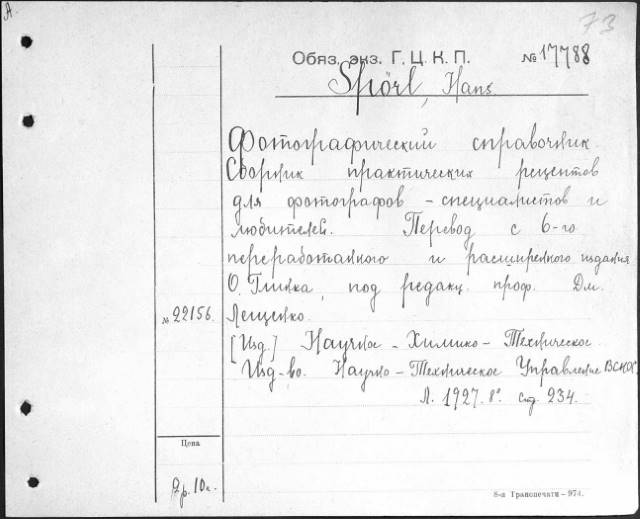 А.
73
Обяз. экз. Г. Ц. К. П. № 17788
Spörl, Hans.
Фотографический справочник.
Сборник практических рецептов
для фотографов - специалистов и
любителей. Перевод с 6-го
переработанного и расширенного издания
О. Глинка, под редакц. проф. Дм.
№ 22156. Лещенко.
[Изд.] Научное - Химико - Техническое
Изд-во. Научно - Техническое Управление ВСНХ.
Л. 1927. 8°. стр. 234.
Цена
2 р. 10 к.
8-я Гранопечати — 974.